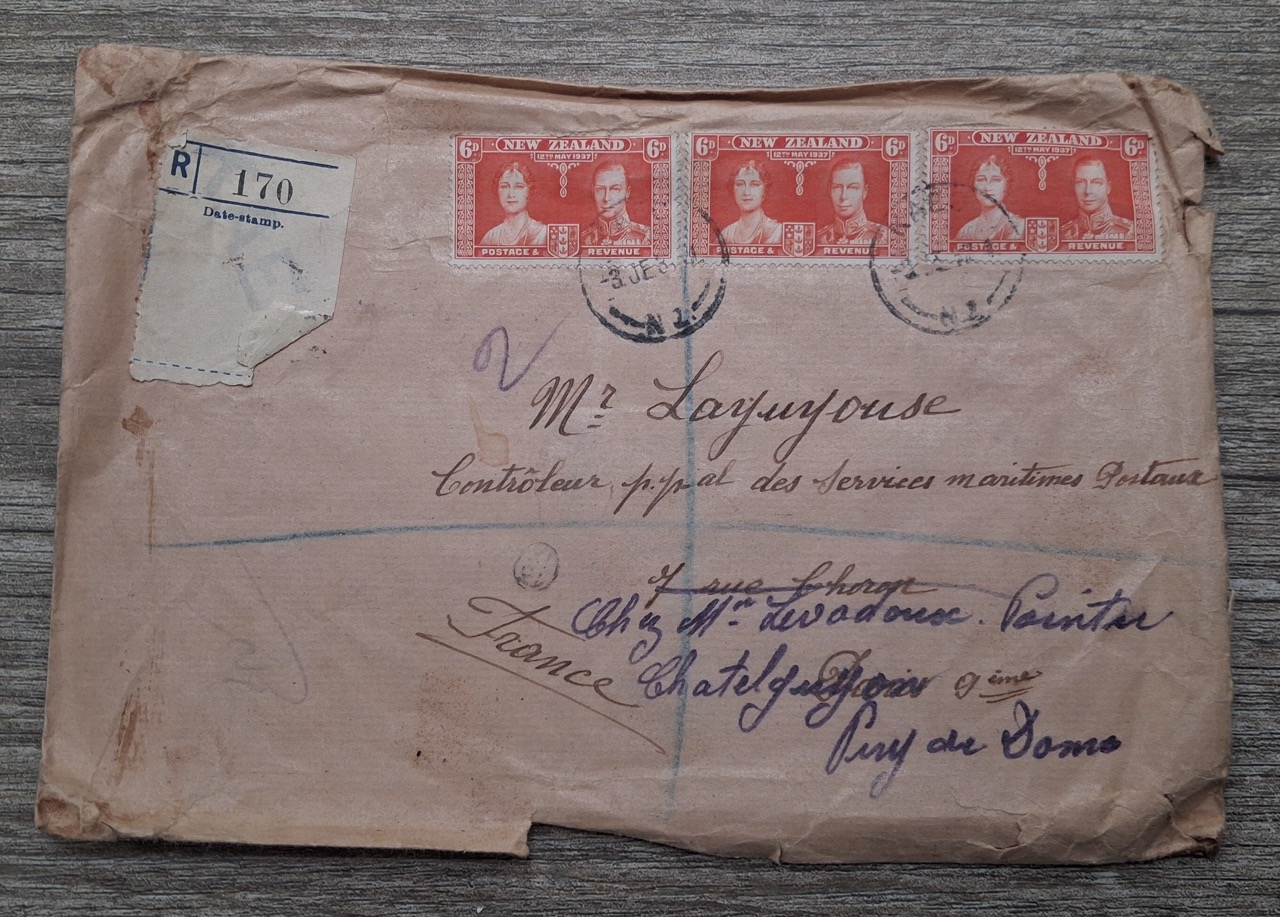 R 170
Date-stamp.
6D NEW ZEALAND 6D
12TH MAY 1937
POSTAGE & REVENUE
6D NEW ZEALAND 6D
12TH MAY 1937
POSTAGE & REVENUE
6D NEW ZEALAND 6D
12TH MAY 1937
POSTAGE & REVENUE
-3 JE
N.Z.
N.Z.
Mr Layuyouse
Contrôleur p.pal des Services maritimes Postaux
7 rue Choron
Chez Mr Levadoux. Peintre
France
Chatelguyon
Paris 9ème
Puy de Dome